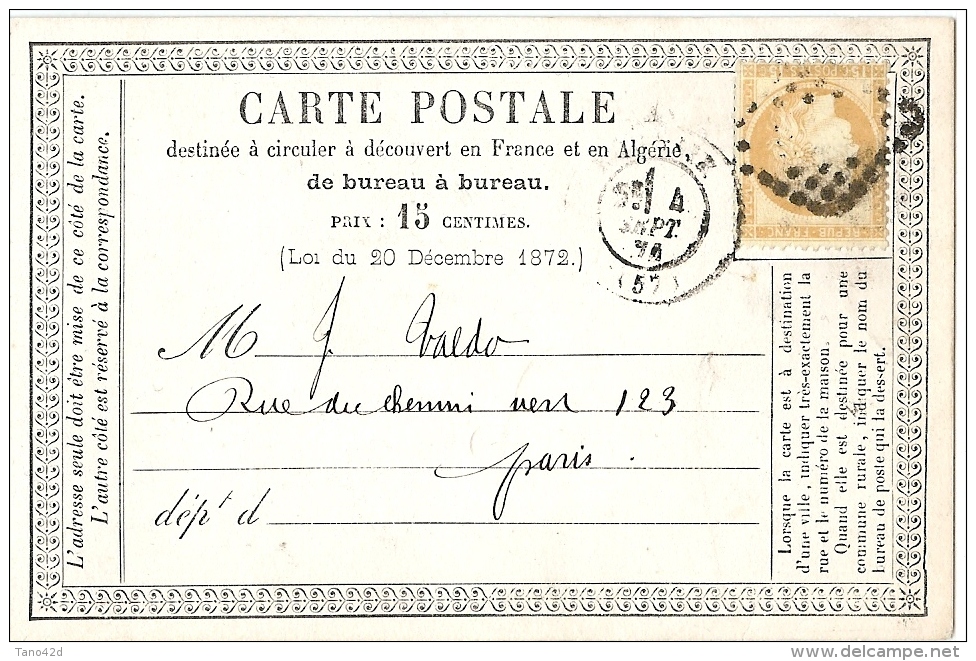 CARTE POSTALE
destinée à circuler à découvert en France et en Algérie,
de bureau à bureau.
PRIX : 15 CENTIMES.
(Loi du 20 Décembre 1872.)
M J. Valdo
Rue du chemin vert 123
paris.
dépt d
L'adresse seule doit être mise de ce côté de la carte.
L'autre côté est réservé à la correspondance.
Lorsque la carte est à destination
d'une ville, indiquer très-exactement la
rue et le numéro de la maison.
Quand elle est destinée pour une
commune rurale, indiquer le nom du
bureau de poste qui la dessert.
4
SEPT.
74
(57)
15 C. POSTES 15 C.
REPUB. FRANC.
Tano42d
delcampe.net